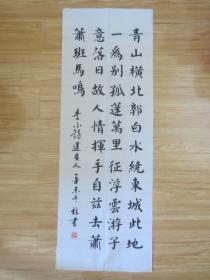 青山橫北郭白水繞東城此地
一為別孤蓬萬里征浮雲游子
意落日故人情揮手自兹去蕭
蕭班馬鳴
李白詩送友人 辛未年 書